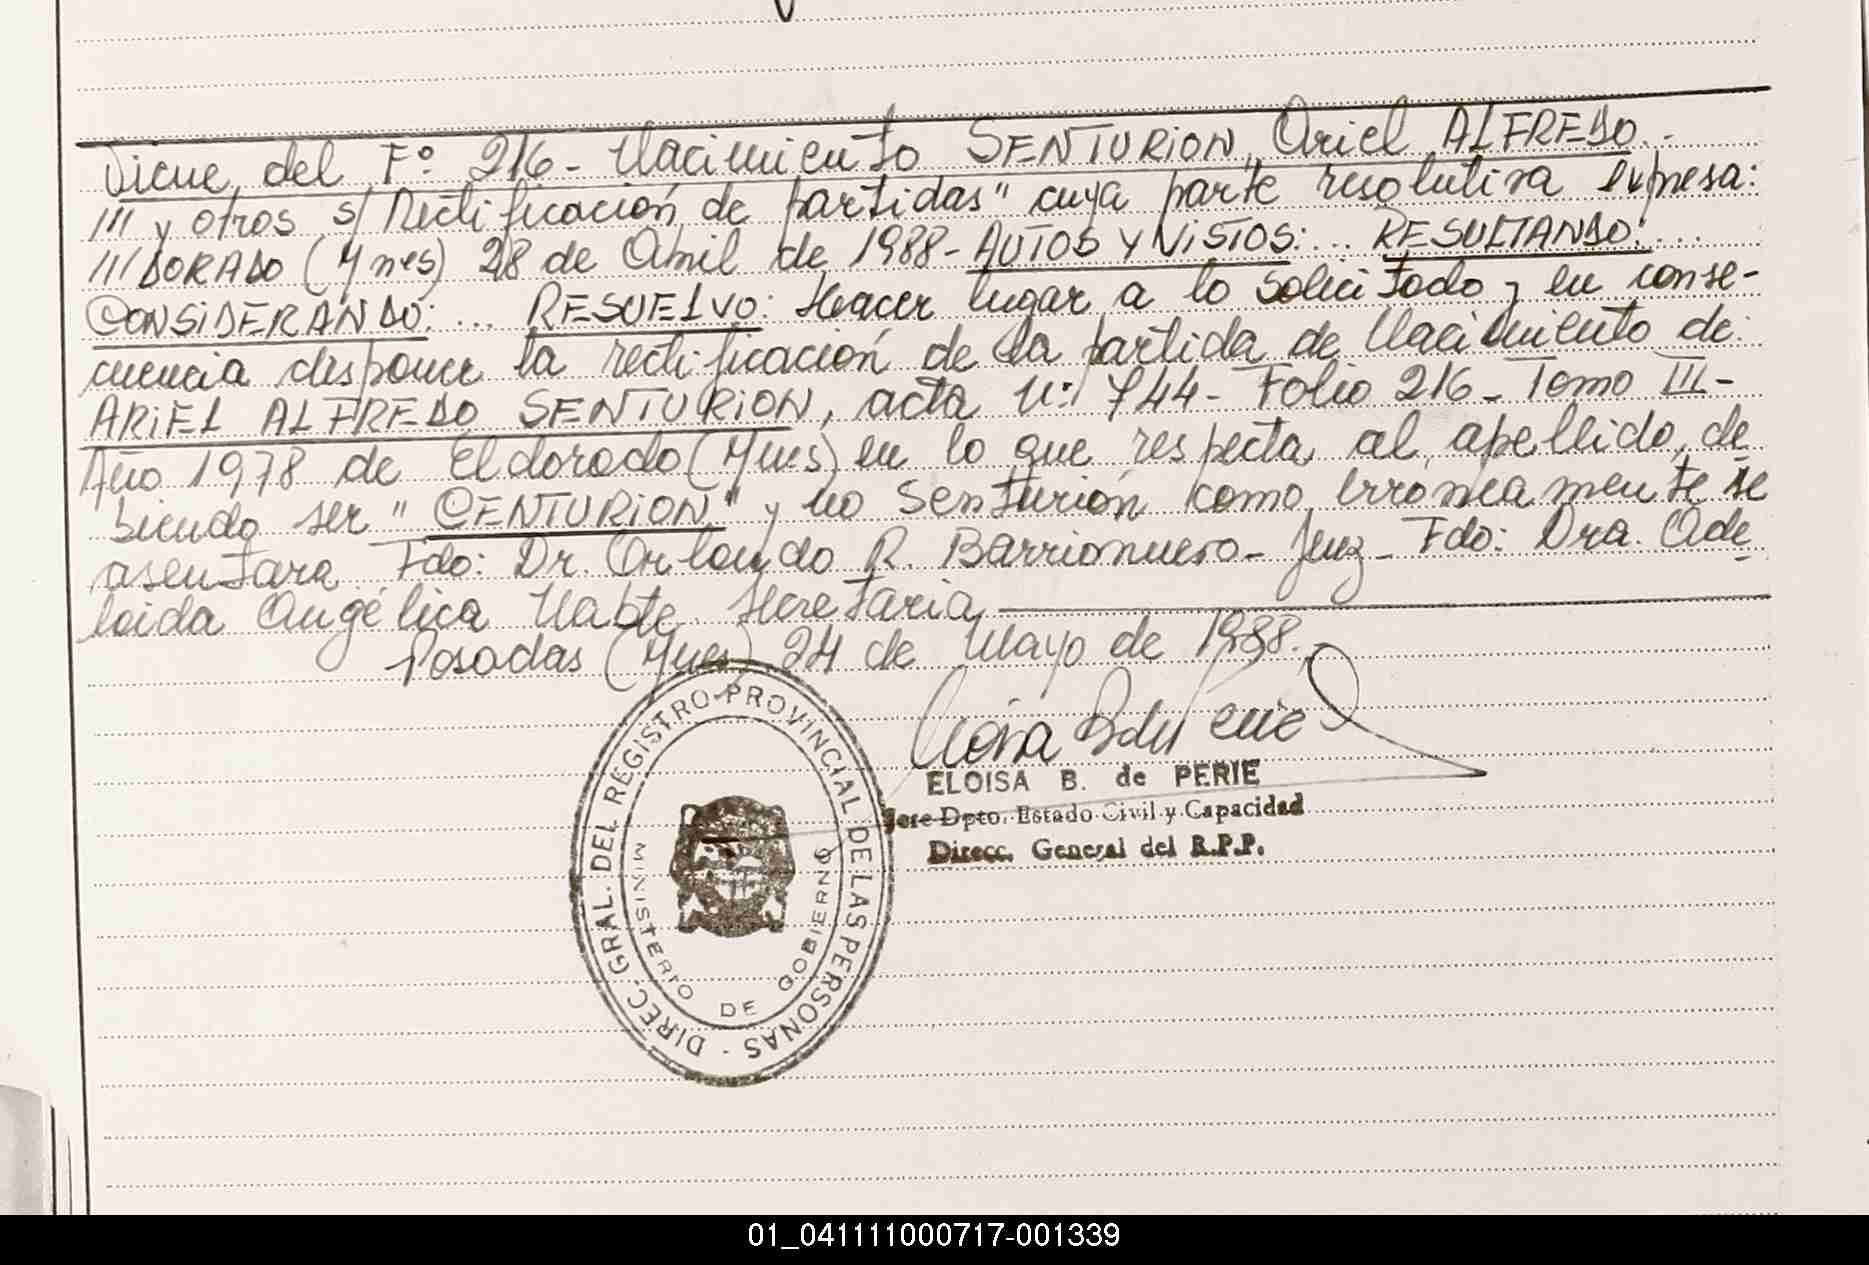 Viene del F° 216 - Nacimiento SENTURION Ariel ALFREDO.-
/// y otros s/ Rectificación de partidas" cuya parte resolutiva expresa:
/// DORADO (Mnes) 28 de Abril de 1988 - AUTOS y VISTOS: ... RESULTANDO: ...
CONSIDERANDO: ... RESUELVO: Hacer lugar a lo solicitado y en conse-
cuencia disponer la rectificación de la partida de Nacimiento de:
ARIEL ALFREDO SENTURION, acta N°: 744 - Folio 216 - Tomo III -
Año 1978 de Eldorado (Mnes) en lo que respecta al apellido, de
biendo ser "CENTURION" y no Senturión como erroneamente se
asentara. Fdo: Dr. Orlando R. Barrionuevo - Juez - Fdo: Dra. Ade
laida Angélica Secretaria
Posadas (Mnes) 24 de Mayo de 1988.
ELOISA B. de PERIE
Jefe Dpto. Estado Civil y Capacidad
Direcc. General del R.P.P.
DIREC. GRAL. DEL REGISTRO PROVINCIAL DE LAS PERSONAS -
MINISTERIO DE GOBIERNO
01_041111000717-001339